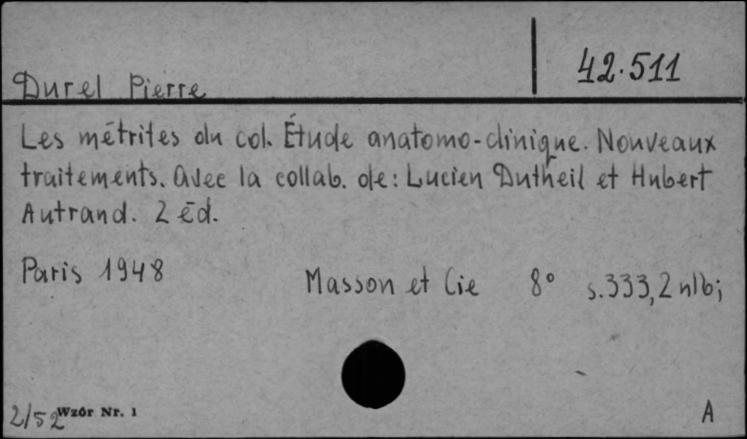 42.511
Durel Pierre
Les métrites du col. Étude anatomo-clinique. Nouveaux
traitements. Avec la collab. de: Lucien Dutheil et Hubert
Autrand. 2 éd.
Paris 1948 Masson et Cie 8° s.333, 2 nlb;
2/52 Wzór Nr. 1 A